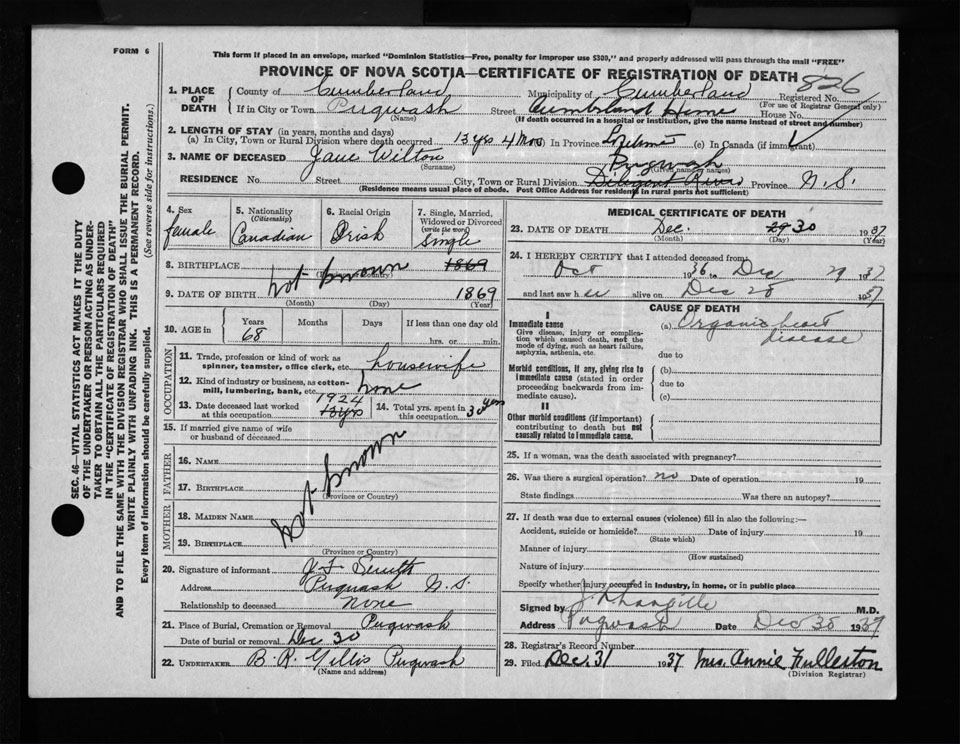 FORM 6
This form if placed in an envelope, marked "Dominion Statistics—Free, penalty for improper use $300," and properly addressed will pass through the mail "FREE"
PROVINCE OF NOVA SCOTIA—CERTIFICATE OF REGISTRATION OF DEATH
826
1. PLACE OF DEATH
County of Cumberland Municipality of Cumberland Registered No.
(For use of Registrar General only)
If in City or Town Pugwash Street Cumbland Home House No.
(Name) (If death occurred in a hospital or institution, give the name instead of street and number)
2. LENGTH OF STAY (in years, months and days)
(a) In City, Town or Rural Division where death occurred 13 yrs 4 Mos In Province Lifetime (c) In Canada (if immigrant)
3. NAME OF DECEASED Jane Wilton
(Surname) (Given name or names)
Pugwash
RESIDENCE No. Street City, Town or Rural Division Diligent River Province N.S.
(Residence means usual place of abode. Post Office Address for residents in rural parts not sufficient)
4. Sex
female
5. Nationality
(Citizenship)
Canadian
6. Racial Origin
Irish
7. Single, Married, Widowed or Divorced
(write the word)
Single
8. BIRTHPLACE not known 1869
9. DATE OF BIRTH 1869
(Month) (Day) (Year)
10. AGE in Years Months Days If less than one day old
68 hrs. or min.
OCCUPATION
11. Trade, profession or kind of work as spinner, teamster, office clerk, etc. housewife
12. Kind of industry or business, as cotton-mill, lumbering, bank, etc. none
13. Date deceased last worked at this occupation 1924 13 yrs
14. Total yrs. spent in this occupation 30 yrs
15. If married give name of wife or husband of deceased
FATHER
16. NAME
17. BIRTHPLACE
(Province or Country)
not known
MOTHER
18. MAIDEN NAME
19. BIRTHPLACE
(Province or Country)
20. Signature of informant Smith
Address Pugwash N.S.
Relationship to deceased None
21. Place of Burial, Cremation or Removal Pugwash
Date of burial or removal Dec 30
22. UNDERTAKER B. R. Gillis Pugwash
(Name and address)
MEDICAL CERTIFICATE OF DEATH
23. DATE OF DEATH Dec. 29 30 1937
(Month) (Day) (Year)
24. I HEREBY CERTIFY that I attended deceased from
Oct 1936 to Dec 29 1937
and last saw her alive on Dec 28 1937
CAUSE OF DEATH
I
Immediate cause
Give disease, injury or complication which caused death, not the mode of dying, such as heart failure, asphyxia, asthenia, etc.
(a) Organic heart disease
due to
Morbid conditions, if any, giving rise to immediate cause (stated in order proceeding backwards from immediate cause).
(b)
due to
(c)
II
Other morbid conditions (if important) contributing to death but not causally related to immediate cause.
25. If a woman, was the death associated with pregnancy?
26. Was there a surgical operation? no Date of operation 19
State findings Was there an autopsy?
27. If death was due to external causes (violence) fill in also the following:—
Accident, suicide or homicide? Date of injury 19
(State which)
Manner of injury
(How sustained)
Nature of injury
Specify whether injury occurred in industry, in home, or in public place
Signed by M.D.
Address Pugwash Date Dec 30 1937
28. Registrar's Record Number
29. Filed Dec. 31 1937 Mrs. Annie Fullerton
(Division Registrar)
SEC. 46—VITAL STATISTICS ACT MAKES IT THE DUTY
OF THE UNDERTAKER OR PERSON ACTING AS UNDER-
TAKER TO OBTAIN ALL THE PARTICULARS REQUIRED
IN THE "CERTIFICATE OF REGISTRATION OF DEATH"
AND TO FILE THE SAME WITH THE DIVISION REGISTRAR WHO SHALL ISSUE THE BURIAL PERMIT.
WRITE PLAINLY WITH UNFADING INK. THIS IS A PERMANENT RECORD.
Every item of information should be carefully supplied. (See reverse side for instructions.)